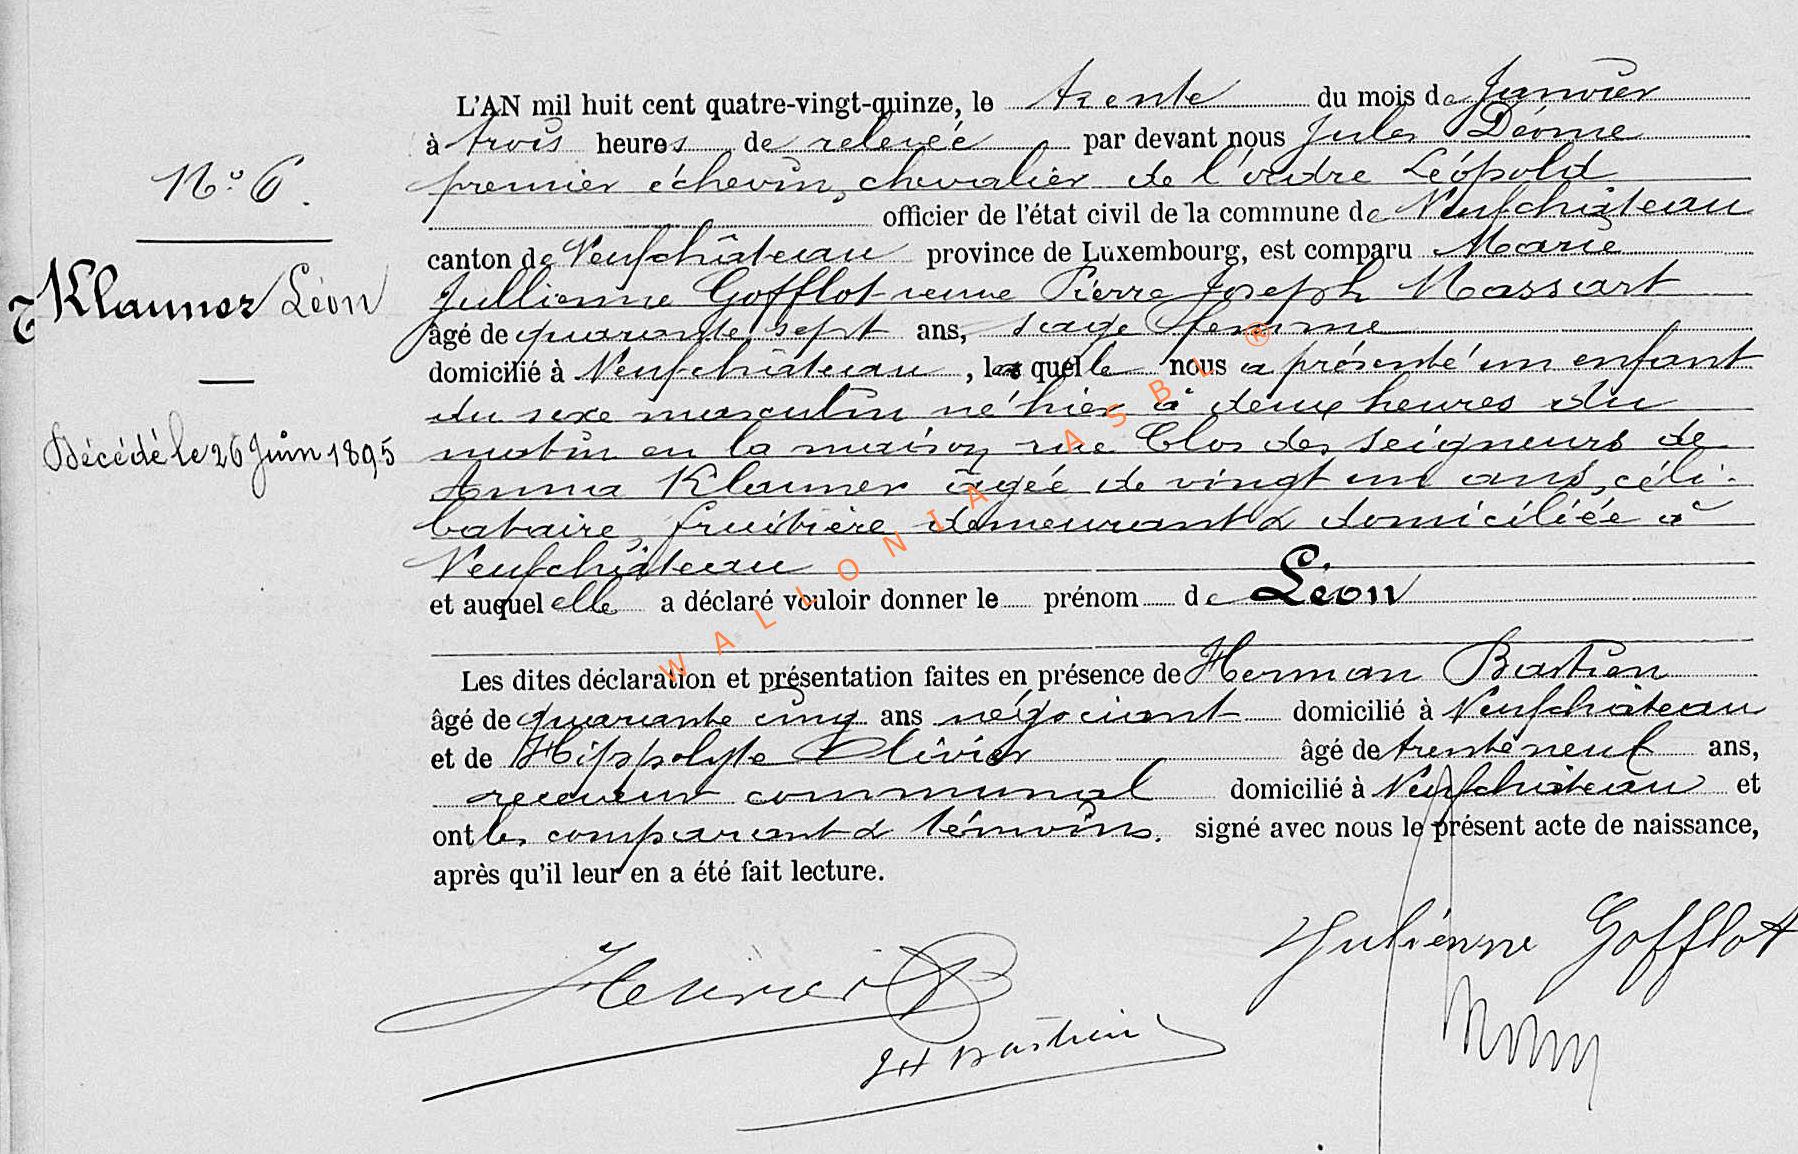 N° 6.
Klauner Léon
Décédé le 26 Juin 1895
L'AN mil huit cent quatre-vingt-quinze, le trente du mois de Janvier
à trois heures de relevée par devant nous Jules
premier échevin, chevalier de l'ordre Léopold
officier de l'état civil de la commune de Neufchâteau
canton de Neufchâteau province de Luxembourg, est comparu Marie
Jullienne Gofflot veuve Pierre Joseph Massart
âgé de quarante sept ans, sage femme
domicilié à Neufchâteau, laquelle nous a présenté un enfant
du sexe masculin né hier à deux heures du
matin en la maison rue Clos des Seigneurs de
Anna Klauner âgée de vingt un ans, céli-
bataire, fruitière demeurant & domiciliée à
Neufchâteau
et auquel elle a déclaré vouloir donner le prénom de Léon
Les dites déclaration et présentation faites en présence de Herman Bastien
âgé de quarante cinq ans négociant domicilié à Neufchâteau
et de Hippolyte Olivier âgé de trente neuf ans,
receveur communal domicilié à Neufchâteau et
ont les comparant & témoins. signé avec nous le présent acte de naissance,
après qu'il leur en a été fait lecture.
Juliènne Gofflot
H Bastien
WALLONIA ASBL ®